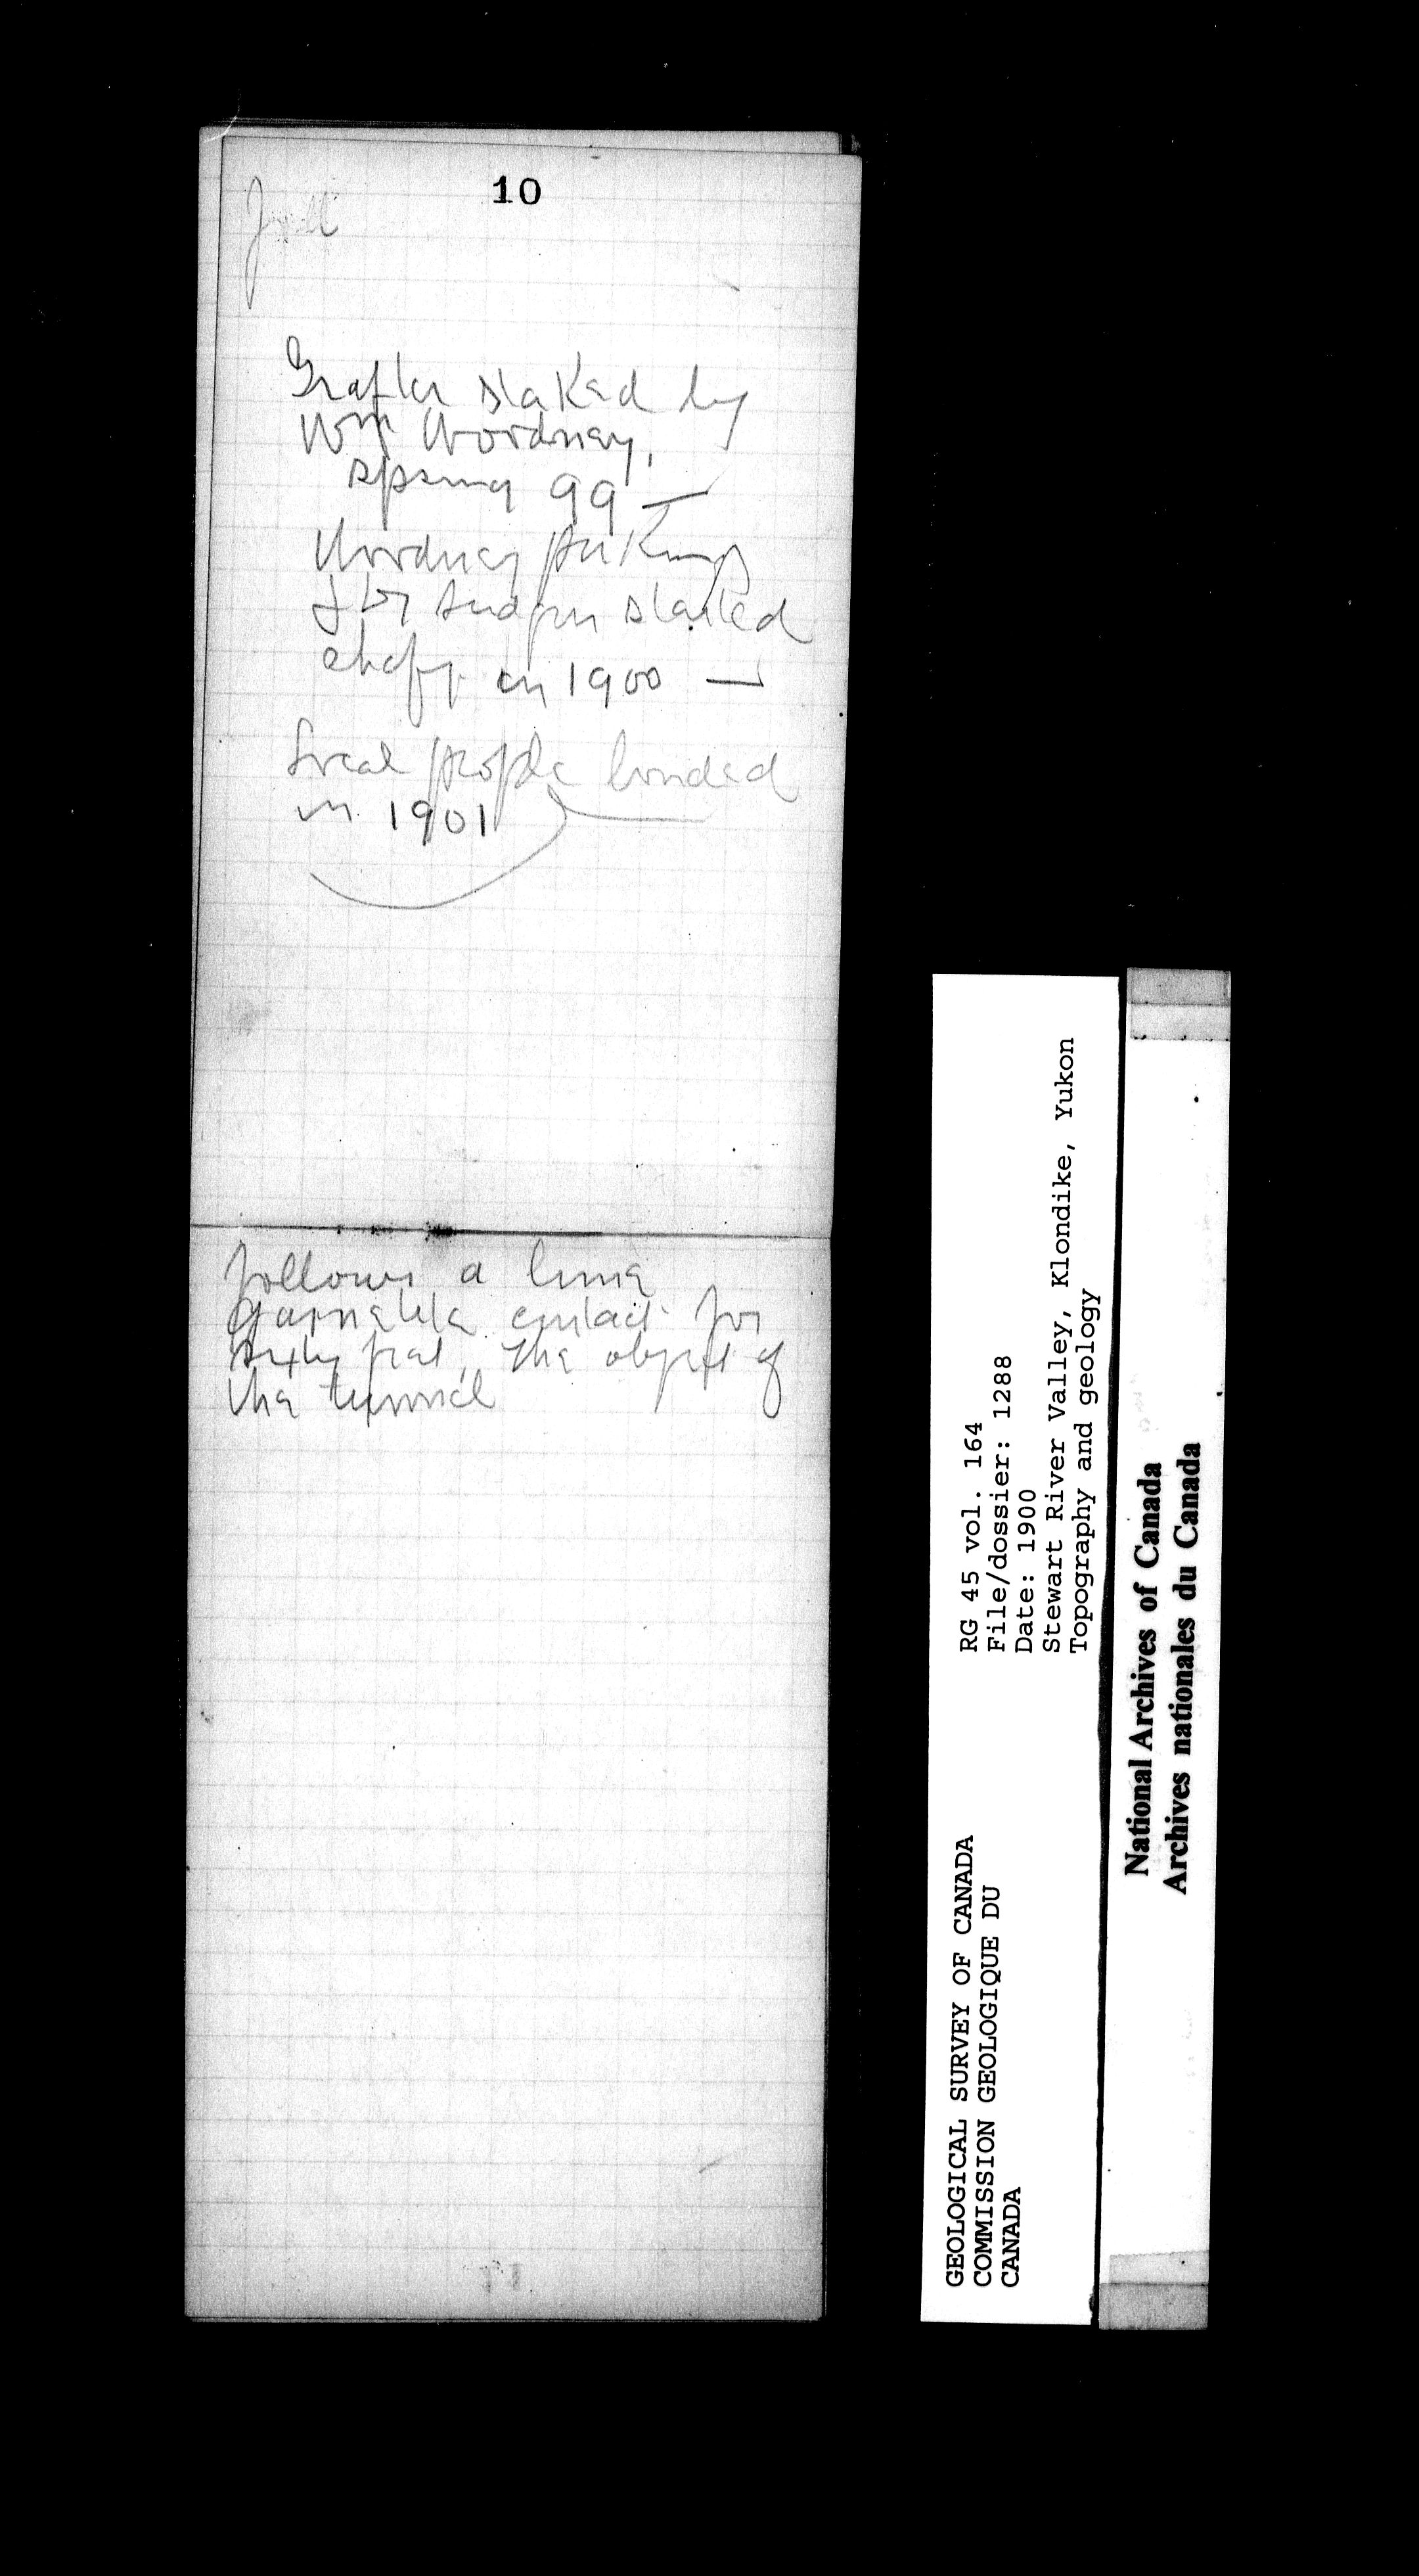 10
Grafter staked by
Wm Woodney,
spring 99 —
Woodney Perkins
staked
in 1900 —
Local people bonded
in 1901
follows a lime
garnetite contact for
sixty feet, the object of
the tunnel
RG 45 vol. 164
File/dossier: 1288
Date: 1900
Stewart River Valley, Klondike, Yukon
Topography and geology
GEOLOGICAL SURVEY OF CANADA
COMMISSION GEOLOGIQUE DU
CANADA
National Archives of Canada
Archives nationales du Canada